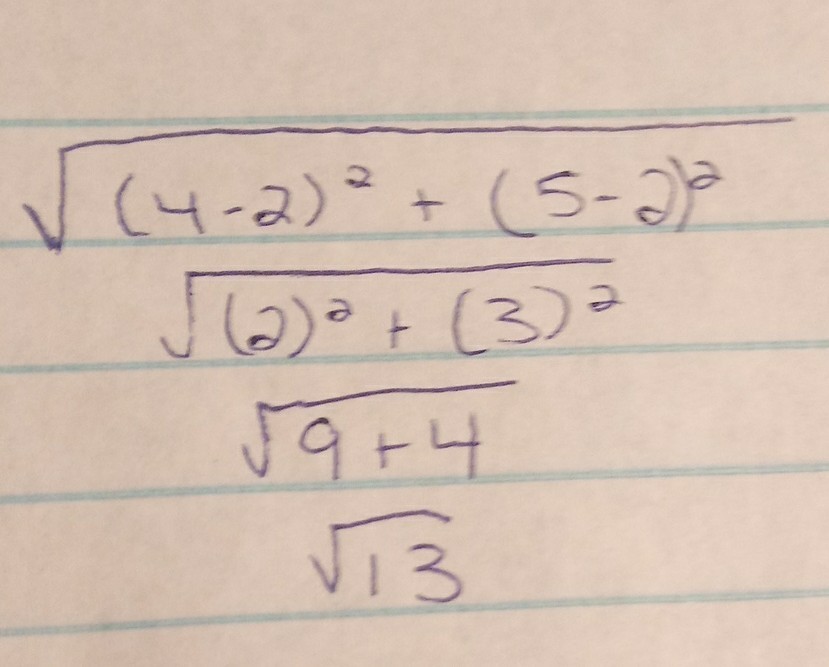 √((4-2)² + (5-2)²)
√((2)² + (3)²)
√(9+4)
√13